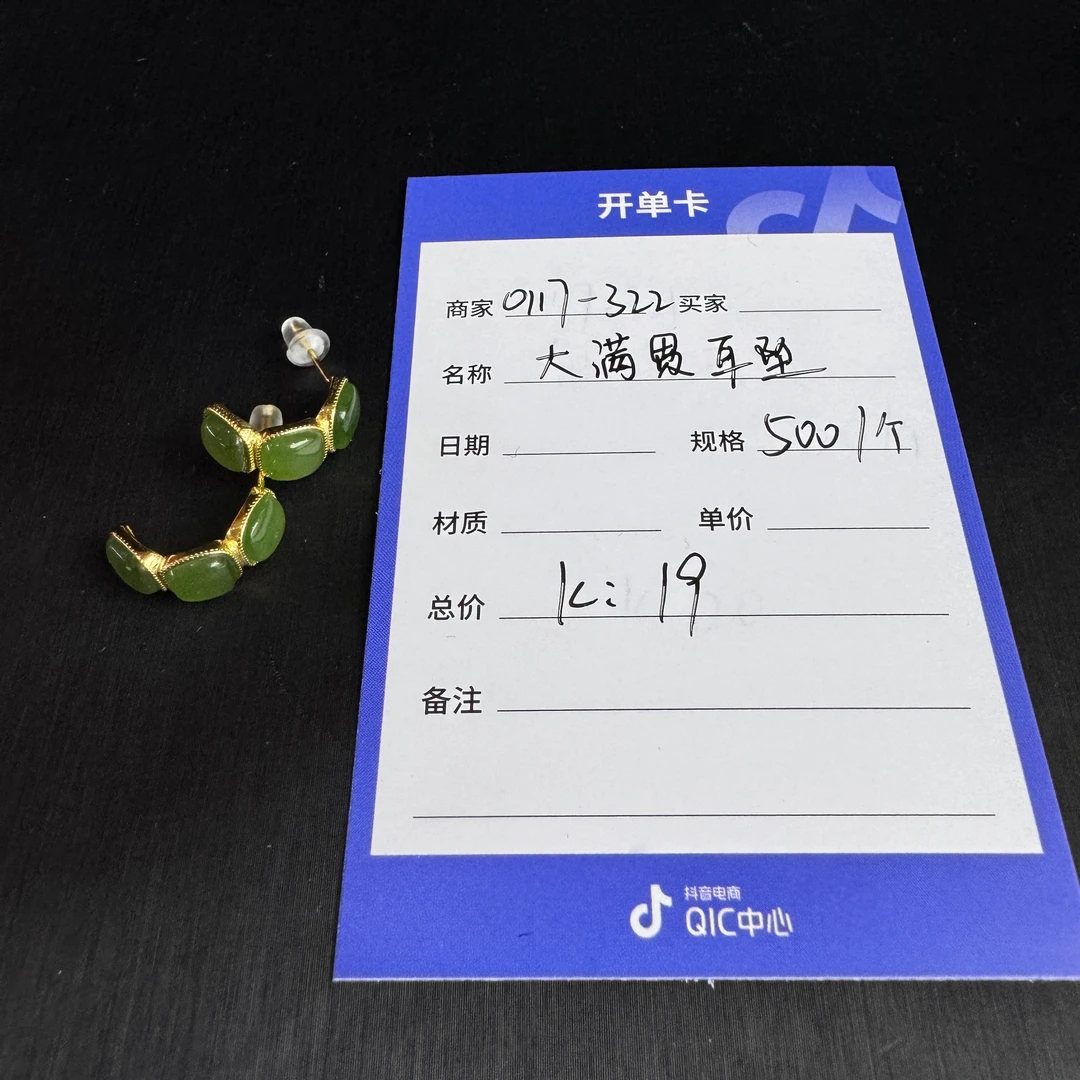 开单卡
商家 0117-322 买家
名称 大满贯耳坠
日期 规格 500 1个
材质 单价
总价 K: 19
备注
抖音电商
QIC中心